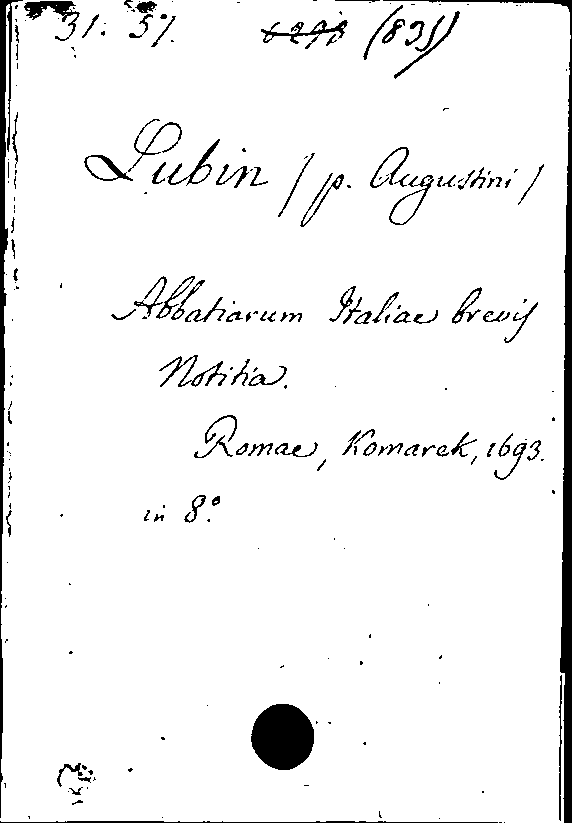 31. 57. (835)
Lubin / p. Augustini /
Abbatiarum Italiae brevis
Notitia.
Romae, Komarek, 1693.
in 8.°